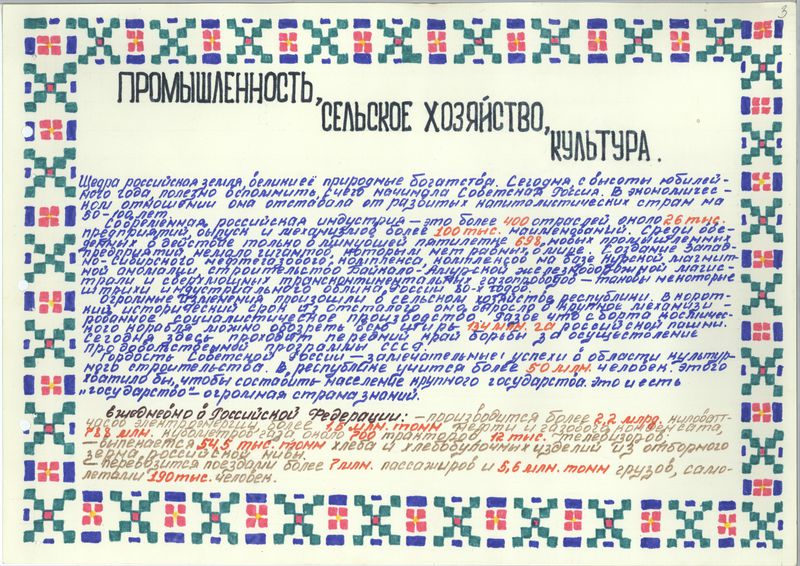 3
ПРОМЫШЛЕННОСТЬ,
СЕЛЬСКОЕ ХОЗЯЙСТВО,
КУЛЬТУРА.
Щедра российская земля, велики её природные богатства. Сегодня с высоты юбилей-
ного года полезно вспомнить, с чего начинала Советская Россия. В экономичес-
ком отношении она отставала от развитых капиталистических стран на
80-100 лет.
Современная российская индустрия - это более 400 отраслей, около 26 тыс.
предприятий, выпуск и механизмов более 100 тыс. наименований. Среди вве-
денных в действие только в минувшей пятилетке 698 новых промышленных
предприятий немало гигантов, которым нет равных в мире. Создание Запад-
но-Сибирского нефтегазового комплекса, комплексов на базе Курской магнит-
ной аномалии, строительство Байкало-Амурской железнодорожной магис-
трали и сверхмощных трансконтинентальных газопроводов - таковы некоторые
штрихи индустриального облика России 80-х годов.
Огромные изменения произошли в сельском хозяйстве республики. В корот-
кий исторический срок из отсталого оно выросло в крупное механизи-
рованное социалистическое производство. Разве что с борта космичес-
кого корабля можно обозреть всю ширь 134 млн. га российской пашни.
Сегодня здесь проходит передний край борьбы за осуществление
Продовольственной программы СССР.
Гордость Советской России - замечательные успехи в области культур-
ного строительства. В республике учится более 50 млн. человек. Этого
хватило бы, чтобы составить население крупного государства. Это и есть
"государство" - огромная страна знаний.
Ежедневно в Российской Федерации: - производится более 2,2 млрд. киловатт-
часов электроэнергии, более 1,5 млн. тонн нефти и газового конденсата,
млн. кубометров газа, около 700 тракторов, 12 тыс. телевизоров.
- выпекается 54,5 тыс. тонн хлеба и хлебобулочных изделий из отборного
зерна российской нивы.
- перевозится поездами более 7 млн. пассажиров и 5,6 млн. тонн грузов, само-
летами 190 тыс. человек.